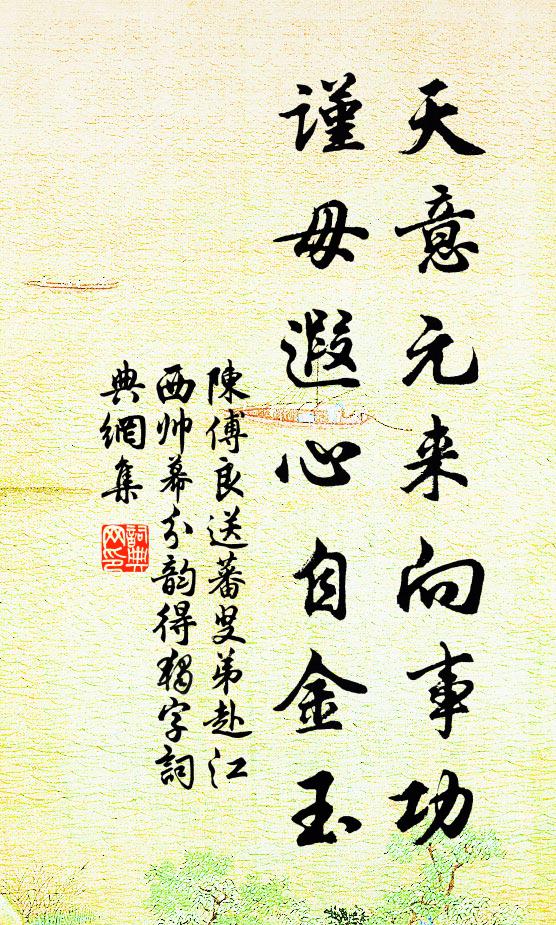 天意元来向事功
谨毋遐心自金玉
陳傅良送蕃叟弟赴江
西帅幕分韵得独字詞
典網集
詞典
网印